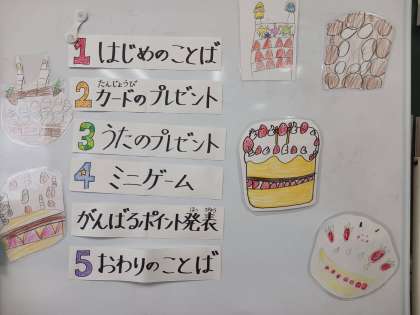 1 はじめのことば
たんじょうび
2 カードのプレゼント
3 うたのプレゼント
4 ミニゲーム
がんばるポイント発表
5 おわりのことば